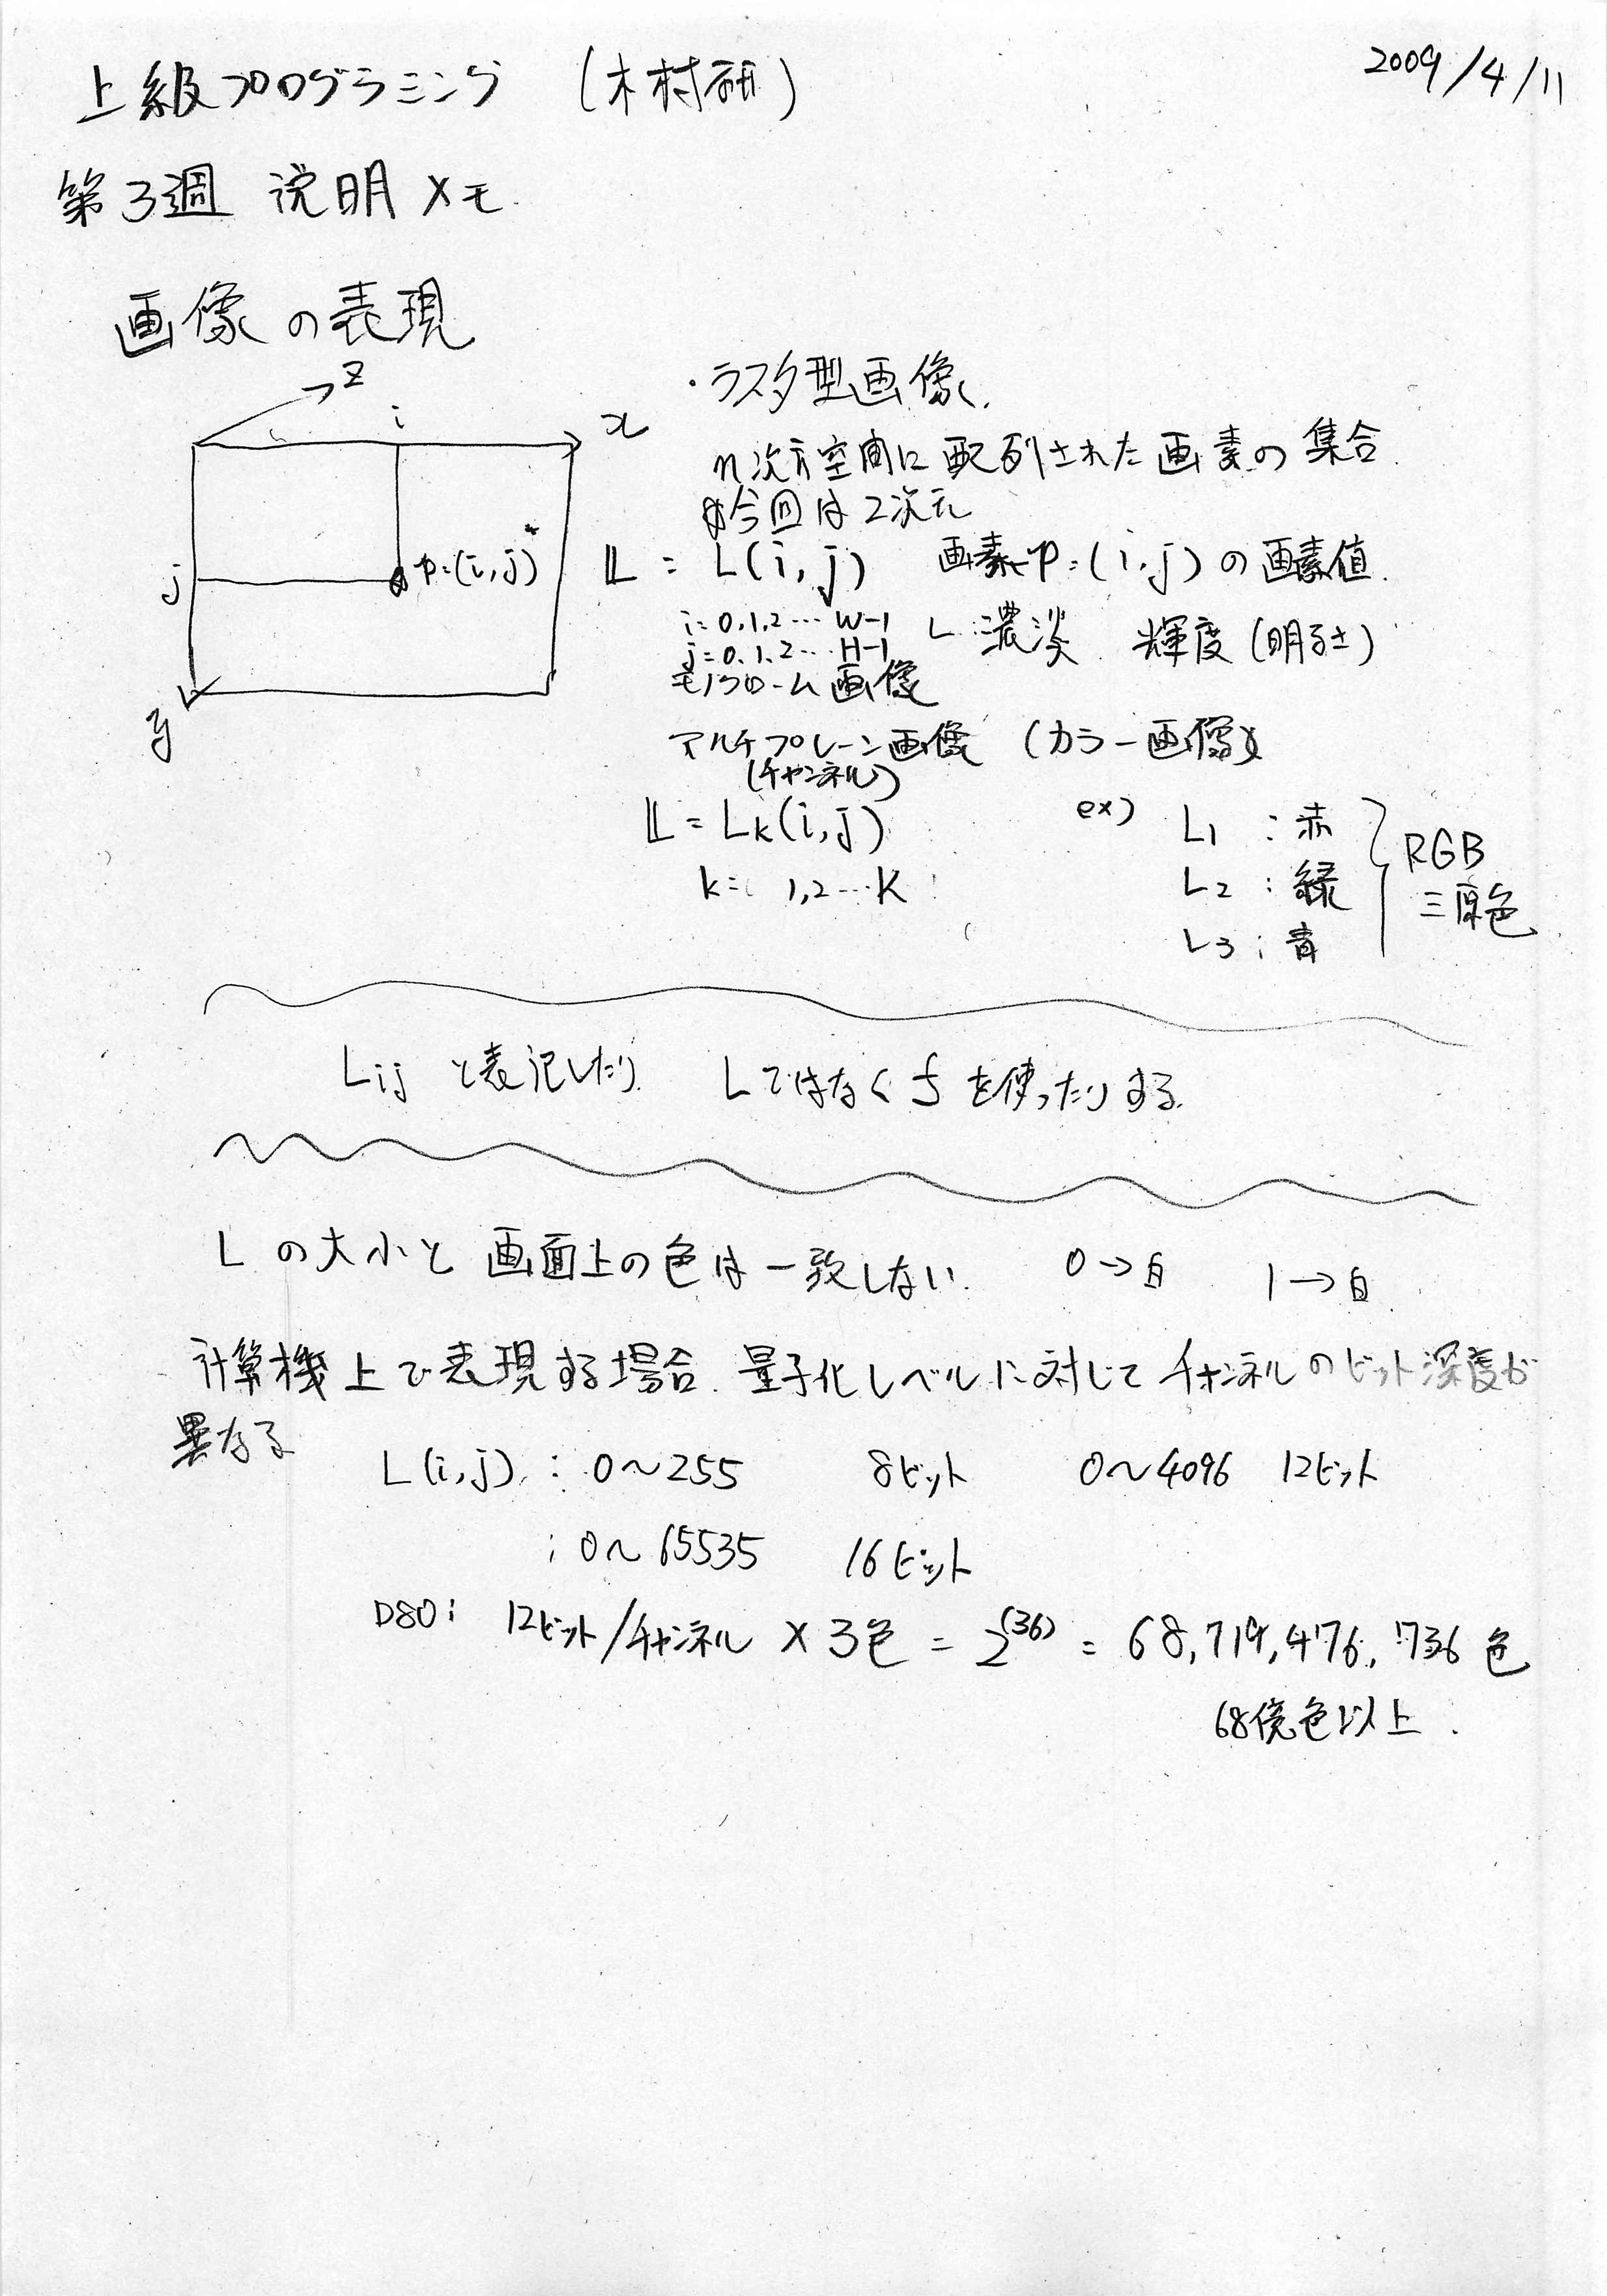 2009/4/11
上級プログラミング (木村研)
第3週 説明メモ
画像の表現
z
i
x
j
p:(i,j)
y
・ラスタ型画像
n次元空間に配列された画素の集合
今回は2次元
𝕃 = L(i,j) 画素p=(i,j)の画素値
i=0,1,2…W-1
j=0,1,2…H-1
L:濃淡 輝度(明るさ)
モノクローム画像
マルチプレーン画像 (カラー画像)
(チャンネル)
𝕃 = Lk(i,j)
k= 1,2…K
ex) L1 : 赤
L2 : 緑
L3 : 青
RGB
三原色
Lij と表記したり Lではなく f を使ったりする.
L の大小と 画面上の色は一致しない. 0→白 1→白
計算機上で表現する場合. 量子化レベルに対してチャンネルのビット深度が
異なる
L(i,j) : 0~255 8ビット 0~4096 12ビット
: 0~65535 16ビット
D80: 12ビット/チャンネル × 3色 = 2^(36) = 68,719,476,736 色
68億色以上.